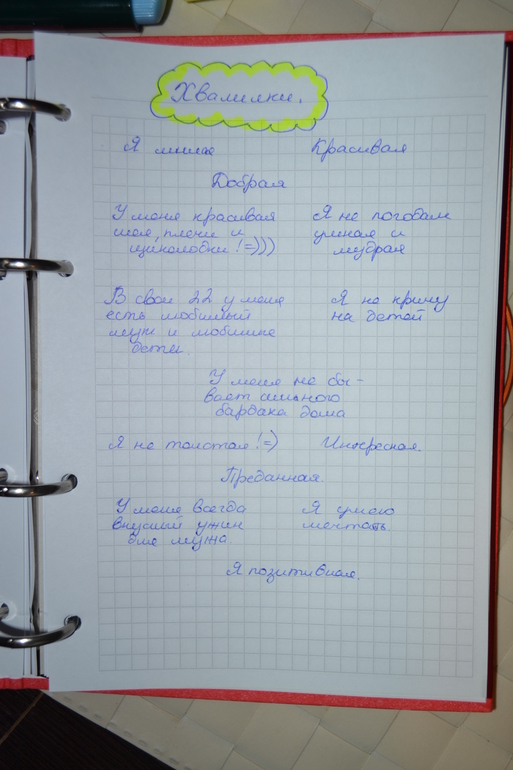 Хвалилки.
Я милая
Красивая
Добрая
У меня красивая
шея, плечи и
щиколодки! =)))
Я не погодам
умная и
мудрая
В свои 22 у меня
есть любимый
муж и любимые
дети.
Я не кричу
на детей
У меня не бы-
вает сильного
бардака дома
Я не толстая! =)
Интересная.
Преданная.
У меня всегда
вкусный ужин
для мужа
Я умею
мечтать.
Я позитивная.